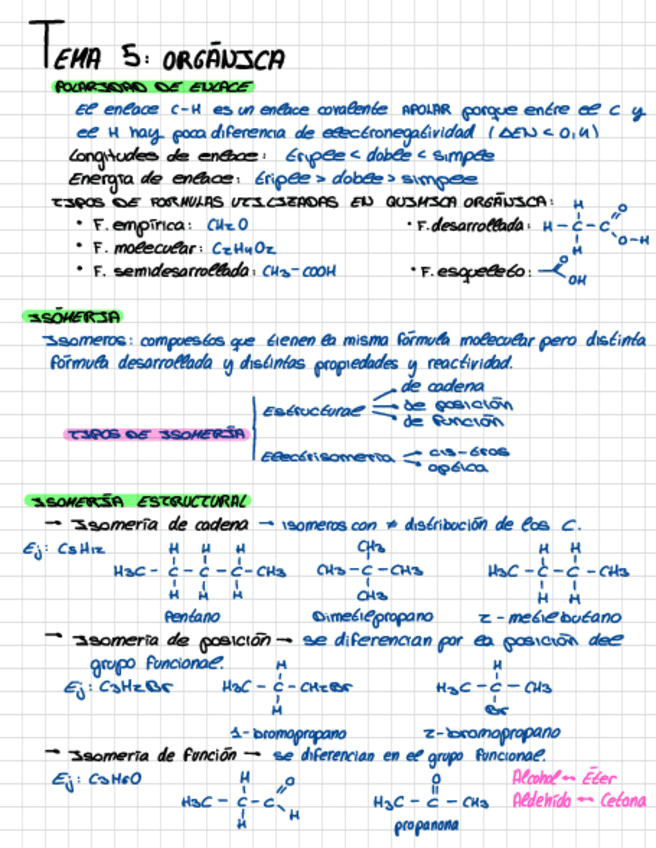 TEMA 5: ORGÁNICA
POLARIDAD DE ENLACE
El enlace C-H es un enlace covalente APOLAR porque entre el C y
el H hay poca diferencia de electronegatividad (ΔEN < 0,4)
Longitudes de enlace: triple < doble < simple
Energía de enlace: triple > doble > simple
TIPOS DE FORMULAS UTILIZADAS EN QUIMICA ORGÁNICA:
• F. empírica: CH2O • F. desarrollada: H - C - C O O-H H H
• F. molecular: C2H4O2
• F. semidesarrollada: CH3-COOH • F. esqueleto: O OH
ISOMERIA
Isomeros: compuestos que tienen la misma fórmula molecular pero distinta
fórmula desarrollada y distintas propiedades y reactividad.
TIPOS DE ISOMERÍA
Estructural
de cadena
de posición
de función
cis-tros
optica
ISOMERÍA ESTRUCTURAL
→ Isomería de cadena → isomeros con ≠ distribución de los C.
Ej: C5H12
H H H
H3C - C - C - C - CH3
H H H
CH3
CH3 - C - CH3
CH3
H H
H3C - C - C - CH3
H H
Pentano Dimetilpropano 2-metilbutano
→ Isomería de posición → se diferencian por la posición del
grupo funcional.
Ej: C3H2Br
H
H3C - C - CH2Br
H
H
H3C - C - CH3
Br
1-bromopropano 2-bromopropano
→ Isomería de función → se diferencian en el grupo funcional.
Ej: C3H6O
H O
H3C - C - C
H H
O
H3C - C - CH3
propanona
Alcohol ↔ Éter
Aldehído ↔ Cetona